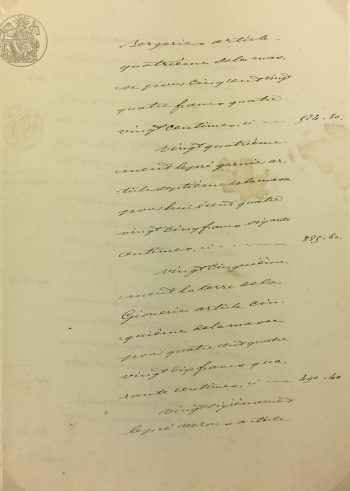 Bergeries article
quatrième de la mas-
se pour cinq cent vingt
quatre francs quatre
vingt centimes, ci — 524.80.
vingt quatrième-
ment le pré garnis ar-
ticle septième de la masse
pour huit cent quatre
vingt cinq francs soixante
centimes, ci — 885.60.
vingt cinquième-
ment la terre de la
article cin-
quième de la masse
pour quatre cent quatre
vingt dix francs qua-
rante centimes, ci — 490.40
vingt sixièmement
le pré article